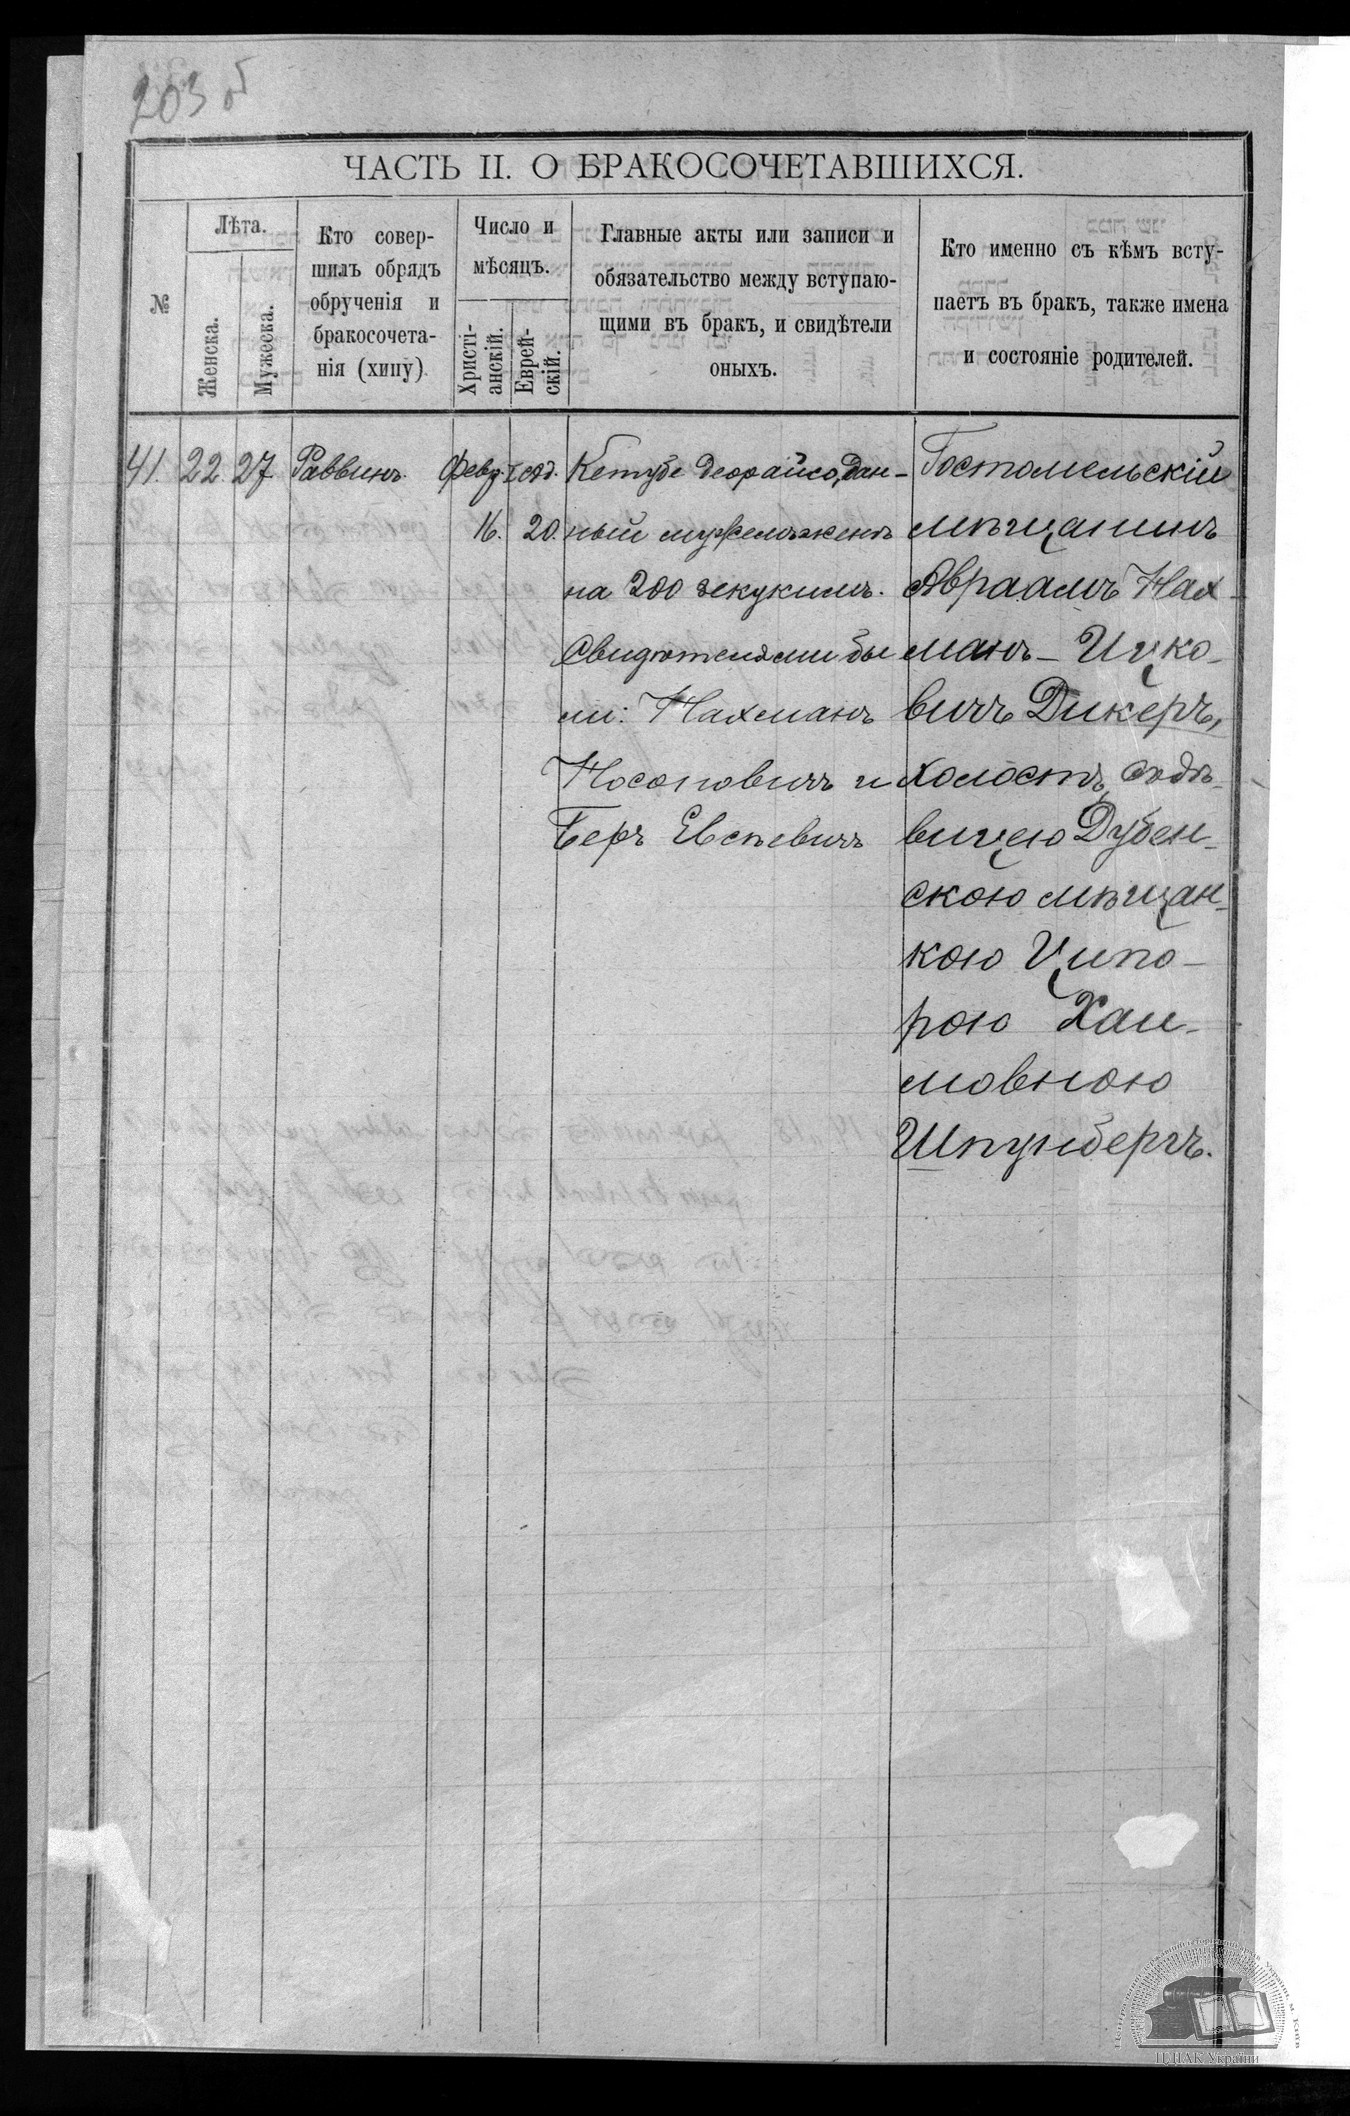 203 б
ЧАСТЬ II. О БРАКОСОЧЕТАВШИХСЯ.
№
Лѣта.
Женска.
Мужеска.
Кто совер-
шилъ обрядъ
обрученія и
бракосочета-
нія (хипу)
Число и
мѣсяцъ.
Христі-
анскій.
Еврей-
скій.
Главные акты или записи и
обязательство между вступаю-
щими въ бракъ, и свидѣтели
оныхъ.
Кто именно съ кѣмъ всту-
паетъ въ бракъ, также имена
и состояніе родителей.
41.
22
27
Раввинъ.
Февр.
16.
20.
Кетубе деорайсо, дан-
ный мужемъ женѣ
на 200 зекукимъ.
Свидѣтелями бы
ли: Нахманъ
Носоновичъ и
Беръ Евсѣевичъ
Гостомельскій
мѣщанинъ
Авраамъ Нах-
манъ – Ицко-
вичъ Дикеръ,
холостъ, съ дѣ-
вицею Дубен-
скою мѣщан-
кою Ципо-
рою Хаи-
мовною
Шпунбергъ.
ЦДІАК України